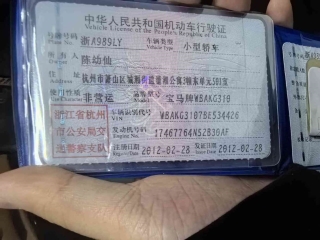 中华人民共和国机动车行驶证
Vehicle License of the People's Republic of China
号牌号码 浙A989LY 车辆类型 小型轿车
Vehicle Type
所有人 陈幼仙
住址 杭州市萧山区城厢街道
使用性质 非营运 品牌型号 宝马牌WBAKG310
Use Character Model
浙江省杭州 车辆识别代号
VIN
市公安局交 发动机号码 17467764N52B30AF
Engine No.
通警察支队 注册日期 2012-02-28 发证日期 2012-02-28
Register Date Issue Date